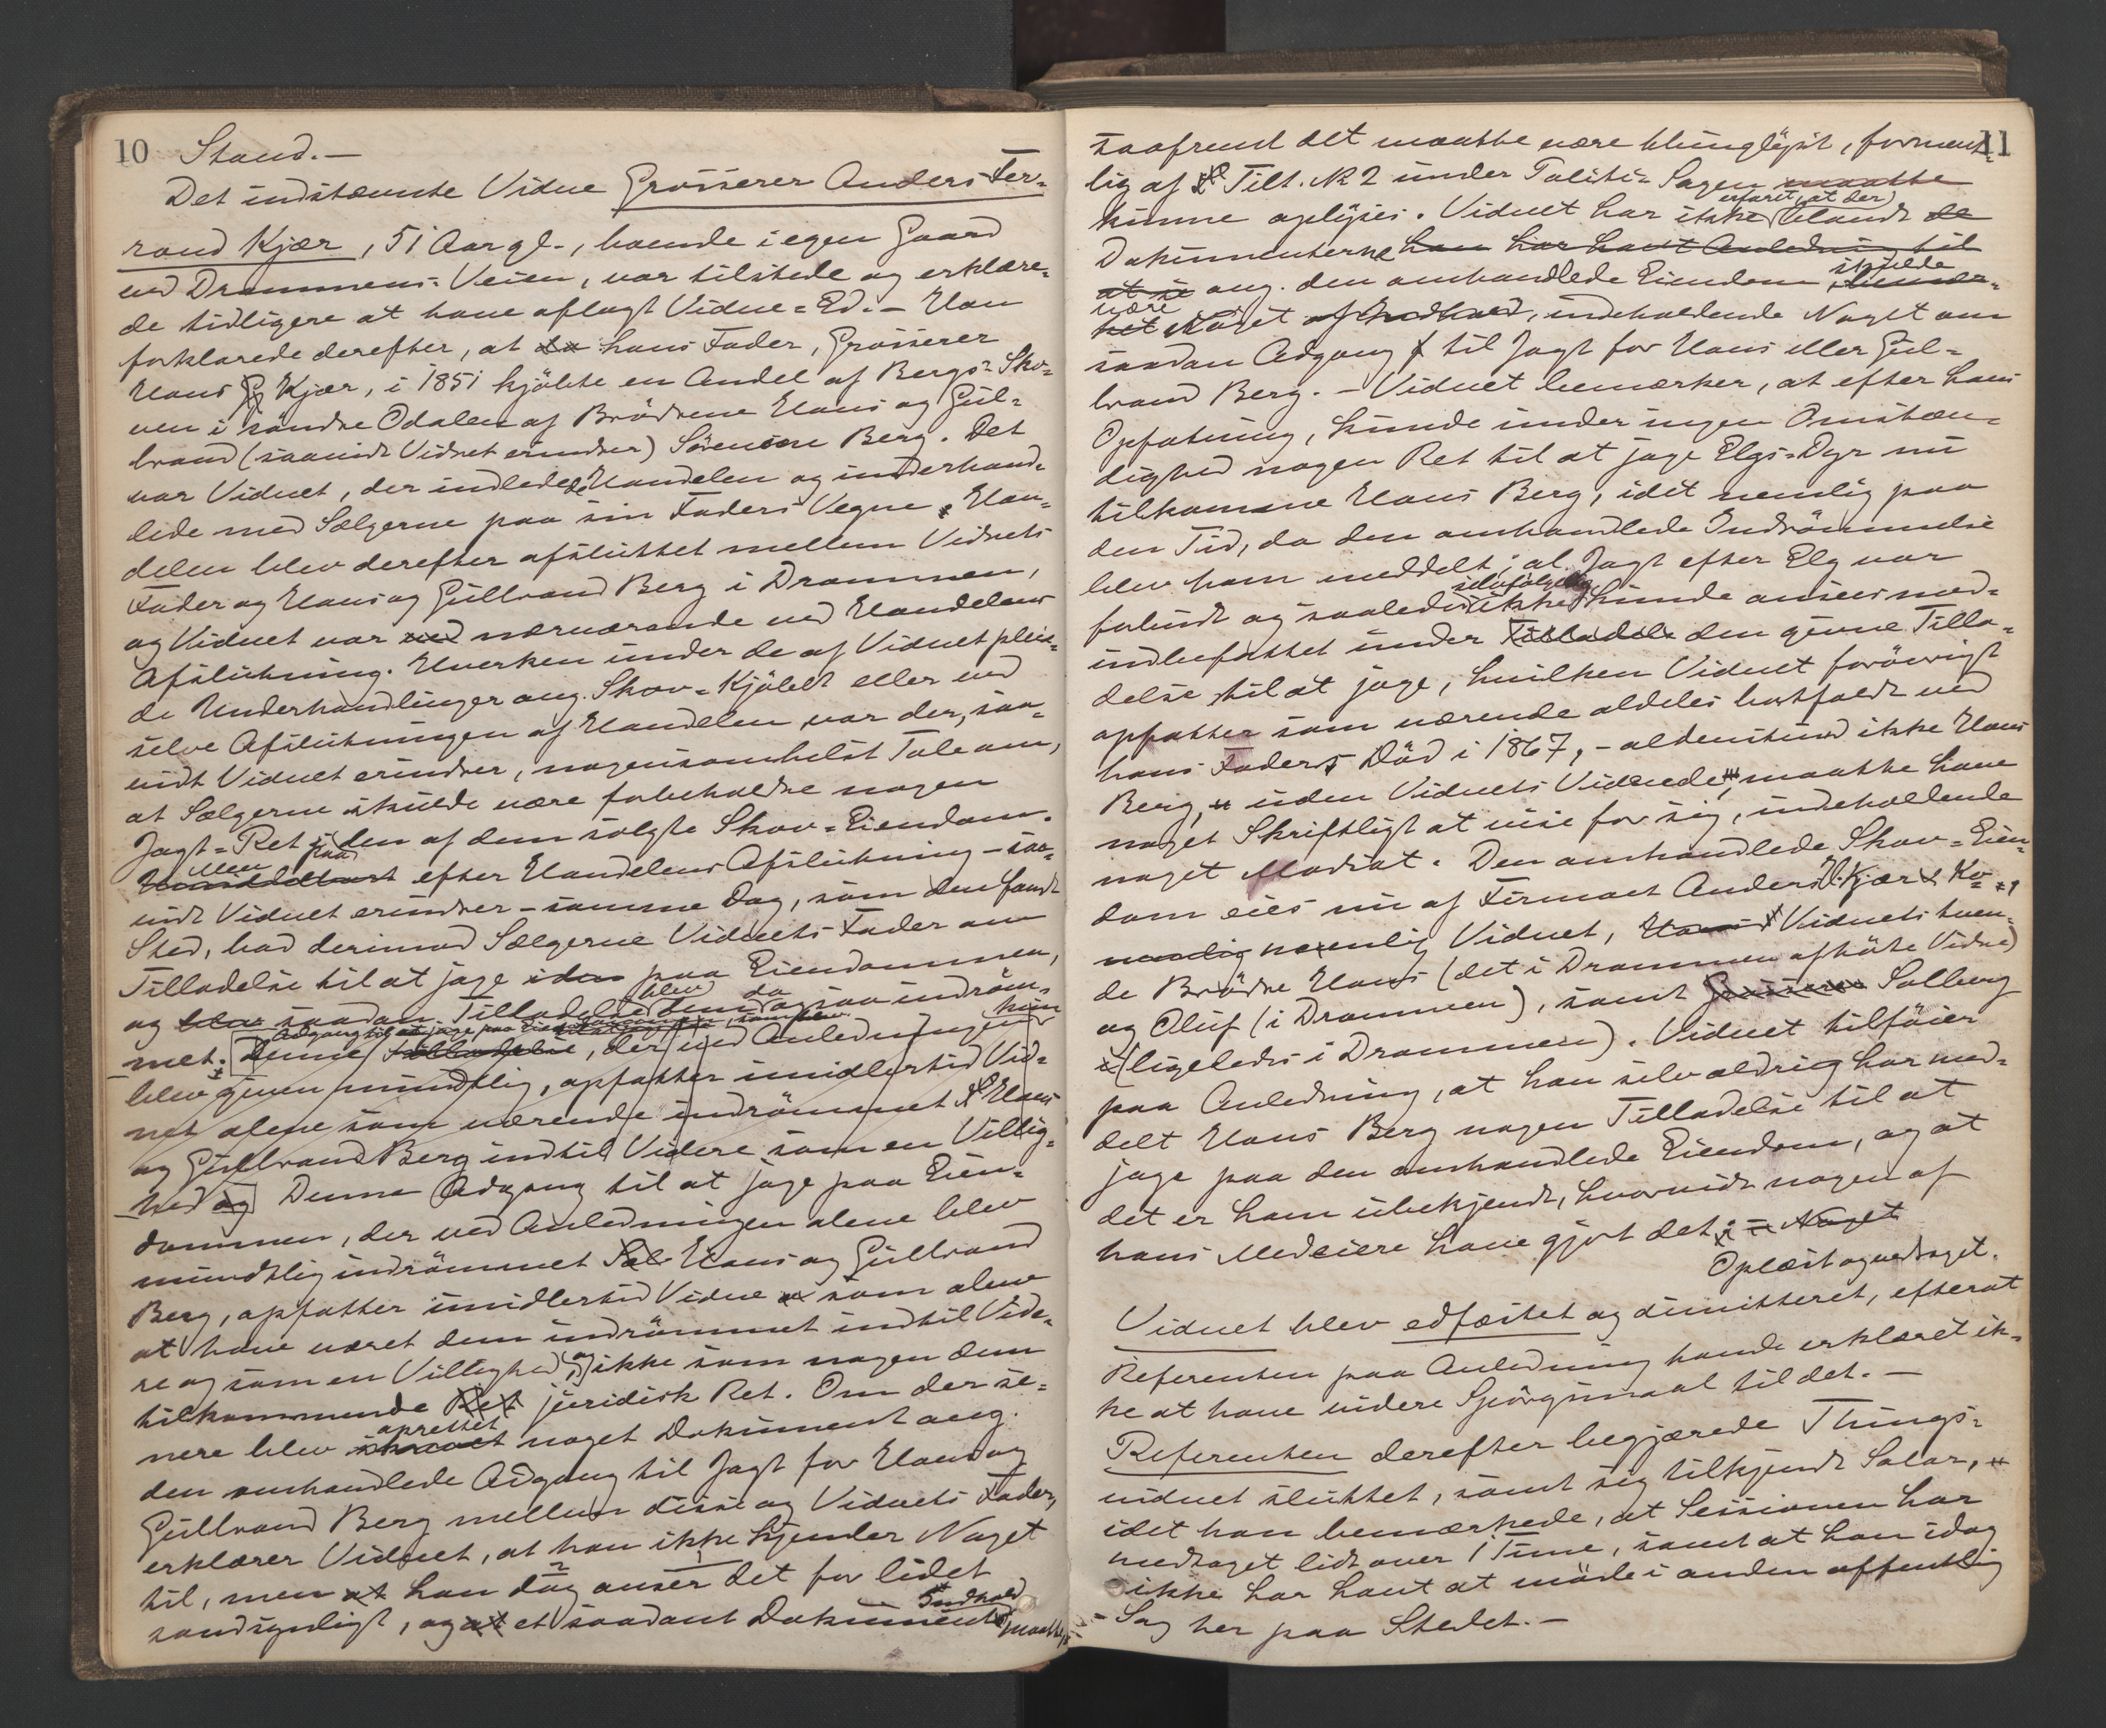 10
Stand. —
Det indstævnte Vidne Grosserer Anders Fer-
rand Kjær, 51 Aar gl., boende i egen Gaard
ved Drammens-Veien, var tilstede og erklære-
de tidligere at have aflagt Vidne-Ed. – Han
forklarede derefter, at hans Fader, Grosserer
Hans Kjær, i 1851 kjöbte en Andel af Bergs-Sko-
ven i söndre Odalen af Brödrene Hans og Gul-
brand (saavidt Vidnet erindrer) Sörensen Berg. Det
var Vidnet, der indledede Handelen og underhand-
lede med Sælgerne paa sin Faders Vegne. Han-
delen blev derefter afsluttet mellem Vidnets
Fader og Hans og Gulbrand Berg i Drammen,
og Vidnet var ved nærværende ved Handelens
Afslutning. Hverken under de af Vidnet plei-
de Underhandlinger ang. Skov-Kjöbet eller ved
selve Afslutningen af Handelen var der, saa-
vidt Vidnet erindrer, nogensomhelst Tale om,
at Sælgerne skulde være forbeholdne nogen
Jagt-Ret i den af dem solgte Skov-Eiendom.
Men paa
efter Handelens Afslutning – saa-
vidt Vidnet erindrer – samme Dag, som den fandt
Sted, bad derimod Sælgerne Vidnets Fader om
Tilladelse til at jage paa Eiendommen,
blev da
og saadan Tilladelse dem ogsaa indröm-
Adgang til at jage paa Eiendommen, som blev kun
met. Denne Tilladelse, der ved Anledningen
blev given mundtlig, opfatter imidlertid Vid-
net alene som værende indrömmet Hans
og Gulbrand Berg indtil Videre som en Villig-
hed og Denne Adgang til at jage paa Eien-
dommen, der ved Anledningen alene blev
mundtlig indrömmet Hans og Gulbrand
Berg, opfatter imidlertid Vidne som alene
at have været dem indrömmet indtil Vide-
re og som en Villighed, og ikke som nogen dem
tilkommende Ret juridisk Ret. Om der se-
oprettet
nere blev skrevet noget Dokument ang.
den omhandlede Adgang til Jagt for Hans og
Gulbrand Berg mellem disse og Vidnets Fader,
erklærer Vidnet, at han ikke kjender Noget
til, men at han dog anser det for lidet
Indhold
sandsynligt, og at et saadant Dokuments maatte,
11
saafremt det maatte være thinglyst, forment-
lig af Tilt. No 2 under Politi-Sagen maatte
erfaret, at der
kunne oplyses. Vidnet har ikke blandt de
Dokumenterne han har havt Anledning til
skulde
at se ang. den omhandlede Eiendom
være
Noget af Indhold, indeholdende Noget om
saadan Adgang til Jagt for Hans eller Gul-
brand Berg. – Vidnet bemærker, at efter hans
Opfatning, kunde under ingen Omstæn-
dighed nogen Ret til at jage Elgs-Dyr nu
tilkomme Hans Berg, idet nemlig paa
den Tid, da den omhandlede Indrömmelse
blev ham meddelt, al Jagt efter Elg var
selvfölgelig
forbudt og saaledes ikke kunde ansees med-
indbefattet under Tilladelse den givne Tilla-
delse til at jage, hvilken Vidnet forövrigt
opfatter som værende aldeles bortfaldt ved
hans Faders Död i 1867, – aldenstund ikke Hans
Berg, uden Vidnets Vidende, maatte have
noget Skriftligt at vise for sig, indeholdende
noget Modsat. Den omhandlede Skov-Eien-
dom eies nu af Firmaet Anders H. Kjær & Ko.,
nemlig nemlig Vidnet, Hans Vidnets tven-
de Brödre Hans (det i Drammen afhörte Vidne)
og Oluf (i Drammen), samt Grosserer Solberg
(ligeledes i Drammen). Vidnet tilföier
paa Anledning, at han selv aldrig har med-
delt Hans Berg nogen Tilladelse til at
jage paa den omhandlede Eiendom, og at
det er ham ubekjendt, hvorvidt nogen af
hans Medeiere have gjort det. Noget
Oplæst og vedtaget.
Vidnet blev edfæstet og dimitteret, efterat
Referenten paa Anledning havde erklæret ik-
ke at have videre Spörgsmaal til det. —
Referenten derefter begjærede Things-
vidnet sluttet, samt sig tilkjendt Salar,
idet han bemærkede, at Sessionen har
medtaget lidt over 1 Time, samt at han idag
ikke har havt at möde i anden offentlig
Sag her paa Stedet. —